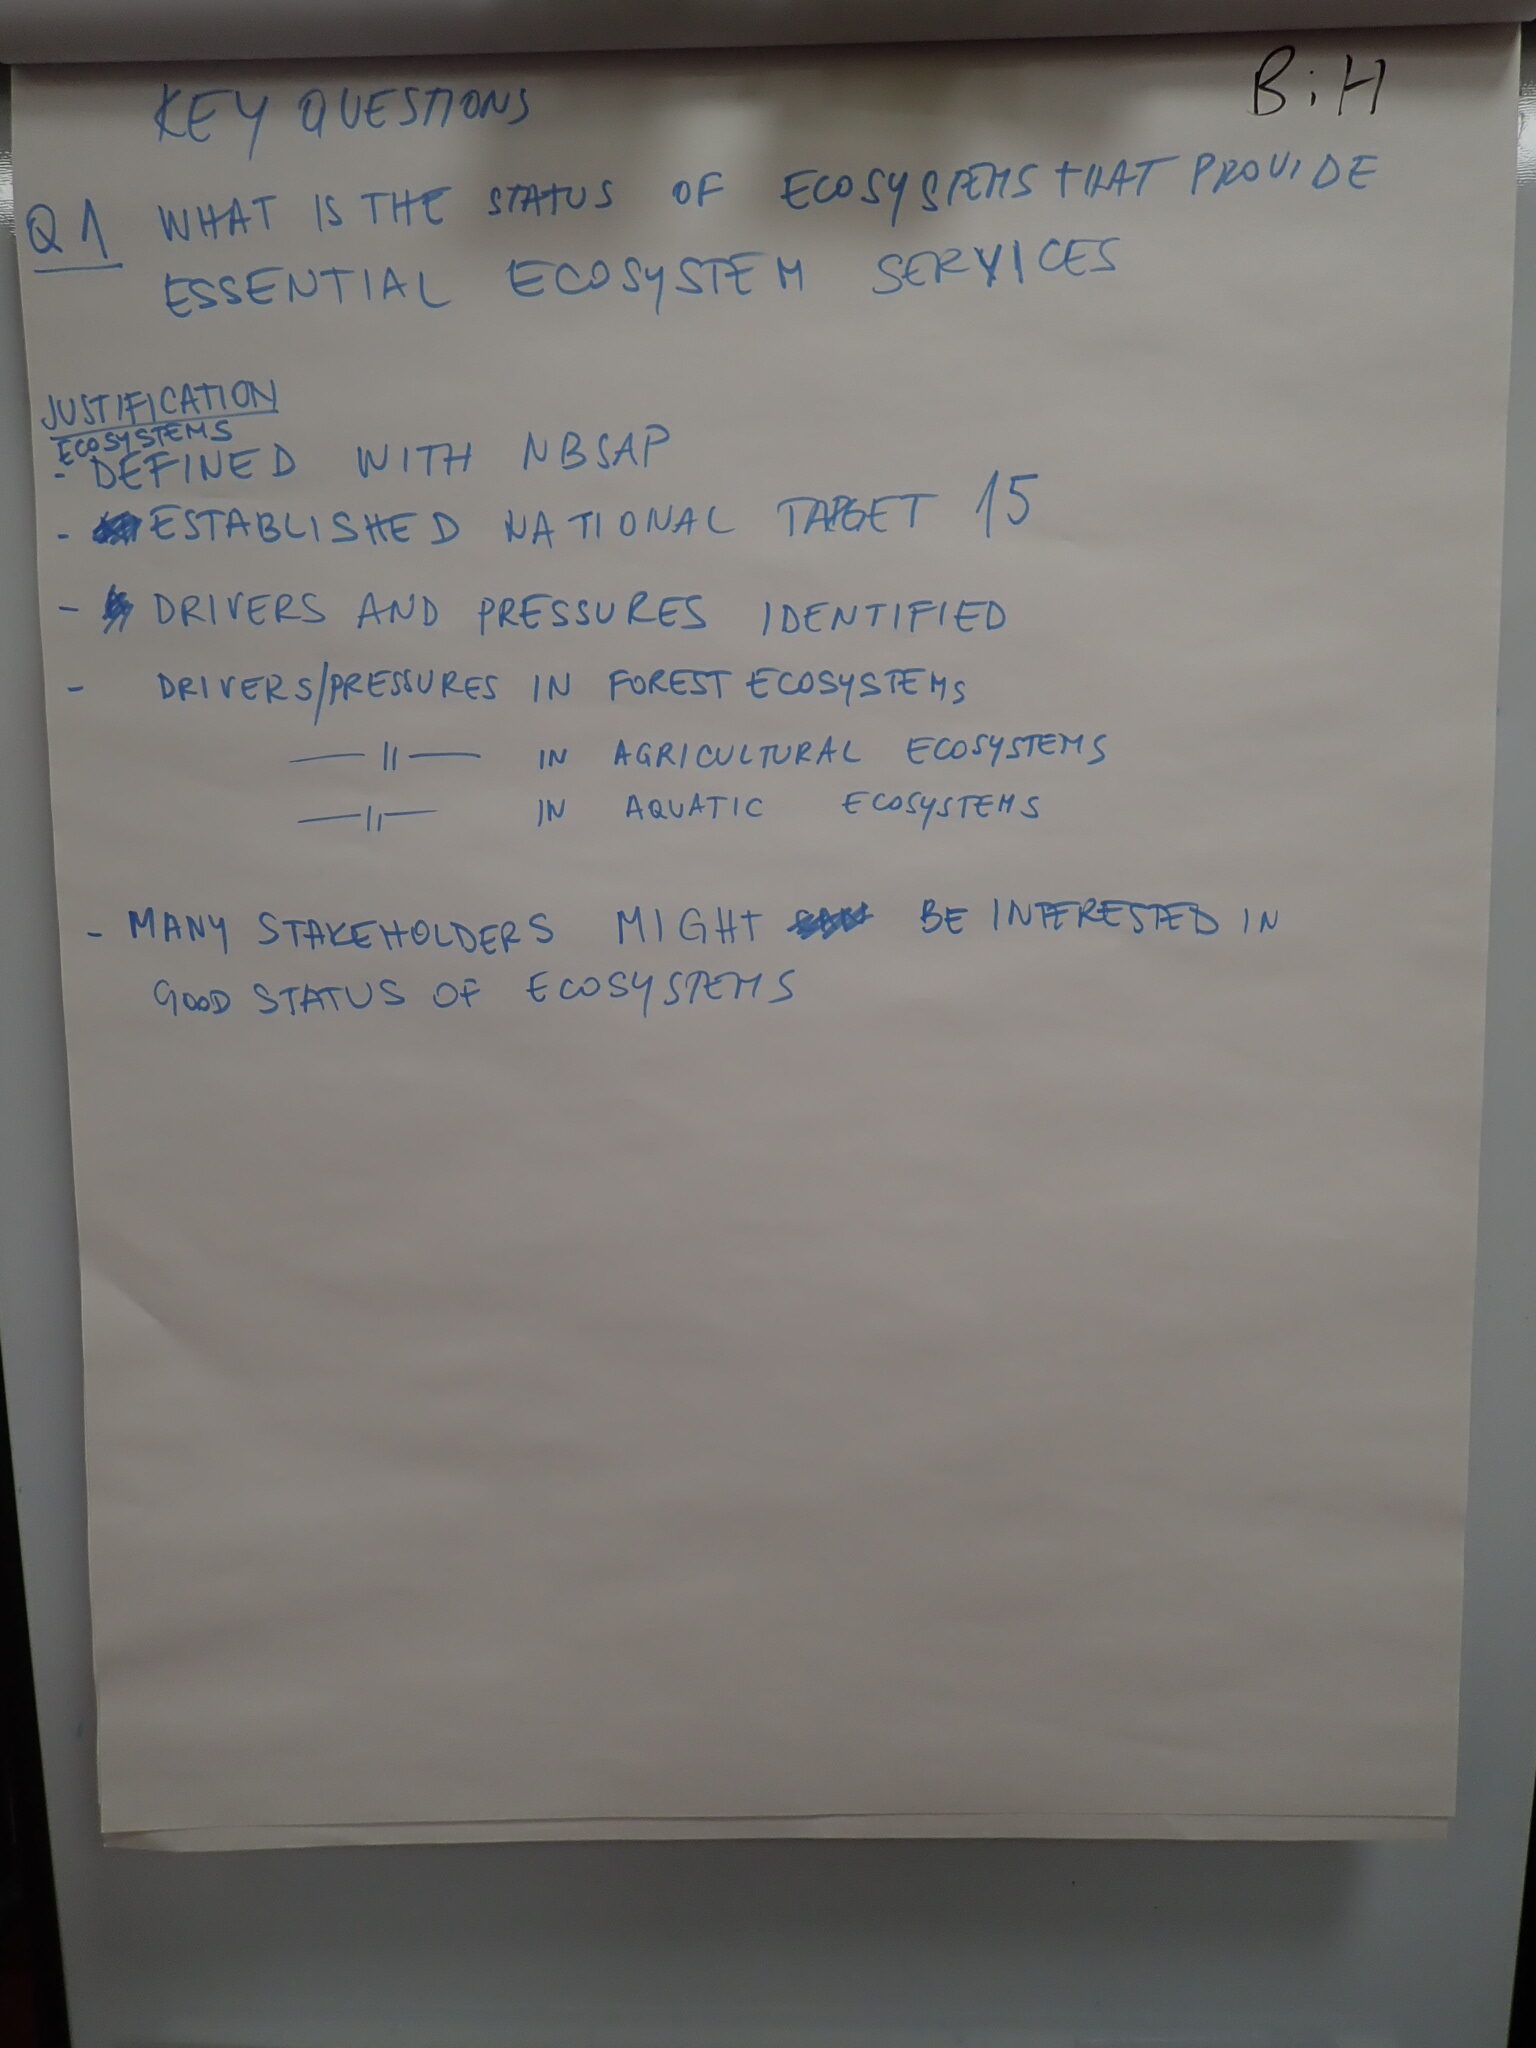 BiH
KEY QUESTIONS
Q1 WHAT IS THE STATUS OF ECOSYSTEMS THAT PROVIDE
ESSENTIAL ECOSYSTEM SERVICES
JUSTIFICATION
ECOSYSTEMS
- DEFINED WITH NBSAP
- ESTABLISHED NATIONAL TARGET 15
- DRIVERS AND PRESSURES IDENTIFIED
- DRIVERS/PRESSURES IN FOREST ECOSYSTEMS
—||— IN AGRICULTURAL ECOSYSTEMS
—||— IN AQUATIC ECOSYSTEMS
- MANY STAKEHOLDERS MIGHT BE INTERESTED IN
GOOD STATUS OF ECOSYSTEMS